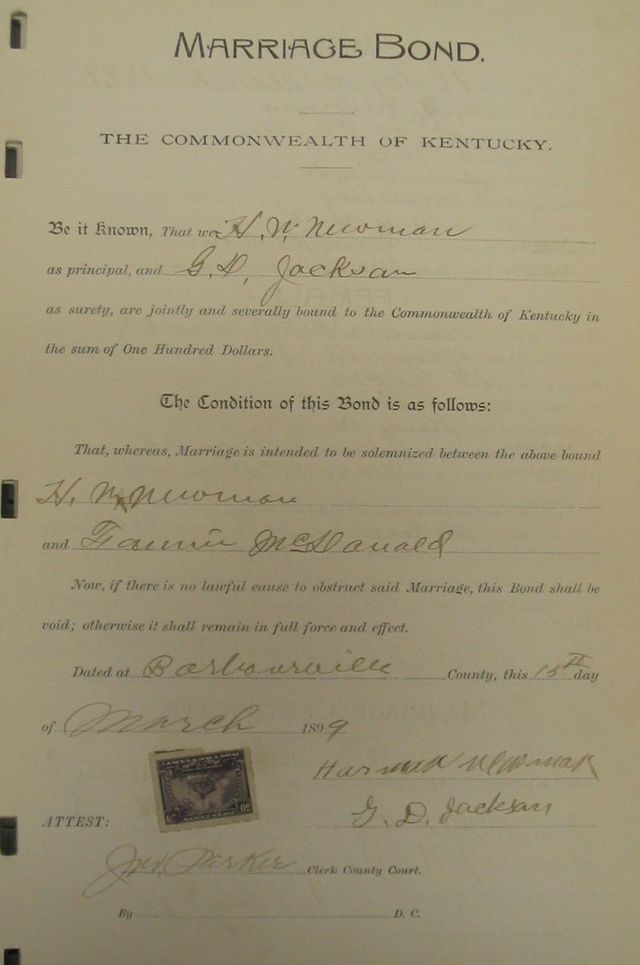 MARRIAGE BOND.
THE COMMONWEALTH OF KENTUCKY.
Be it Known, That we H. W. Newman
as principal, and G. D. Jackson
as surety, are jointly and severally bound to the Commonwealth of Kentucky in
the sum of One Hundred Dollars.
The Condition of this Bond is as follows:
That, whereas, Marriage is intended to be solemnized between the above bound
H. W. Newman
and Fannie McDonald
Now, if there is no lawful cause to obstruct said Marriage, this Bond shall be
void; otherwise it shall remain in full force and effect.
Dated at Barbourville County, this 15th day
of March 1899
Newman
G. D. Jackson
ATTEST:
Jno. Parker Clerk County Court.
By D. C.